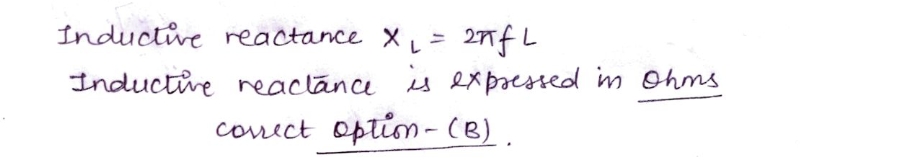 Inductive reactance X_L = 2πfL
Inductive reactance is expressed in ohms
correct option - (B).